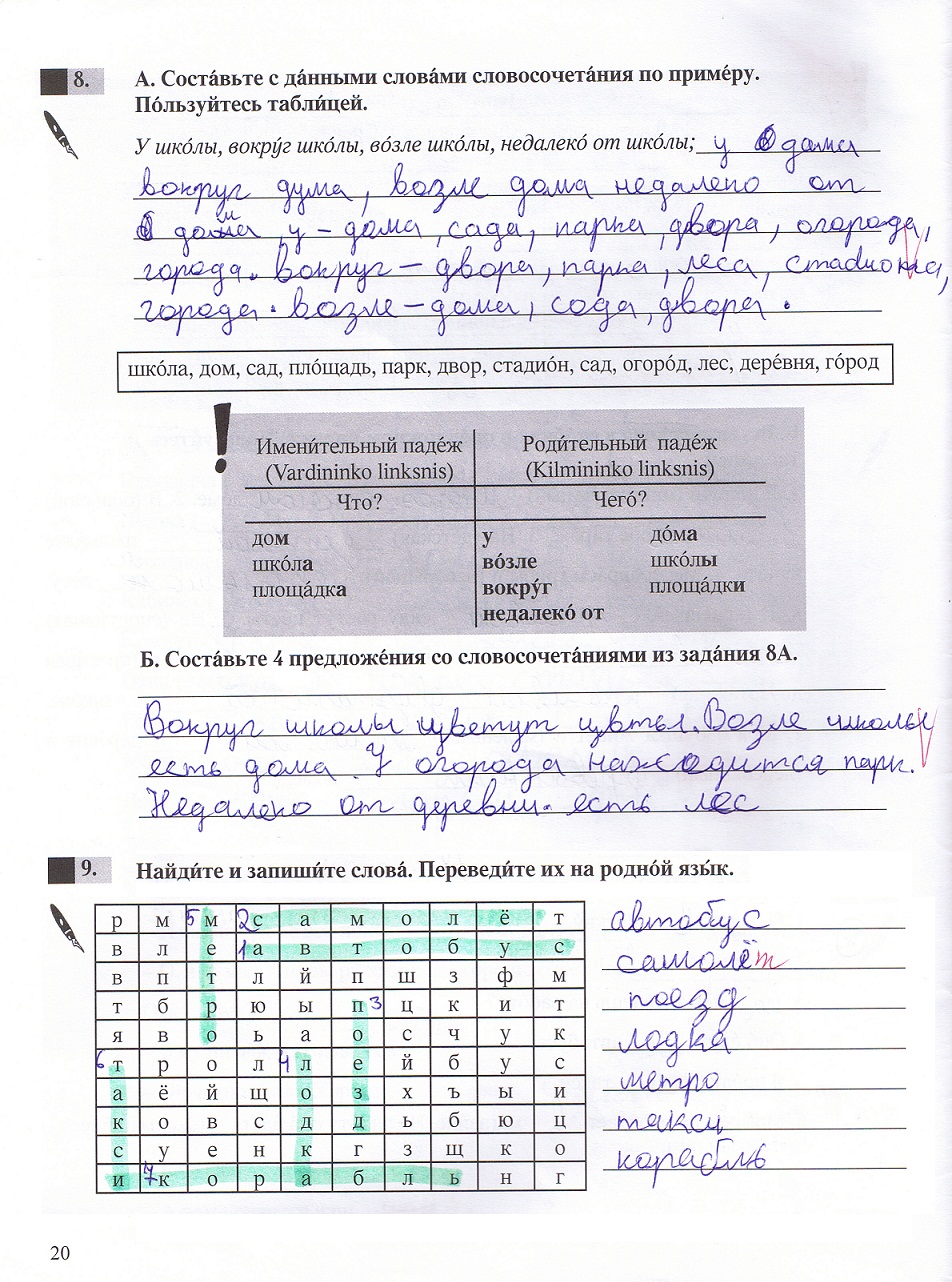 8. А. Соста́вьте с да́нными слова́ми словосочета́ния по приме́ру.
По́льзуйтесь табли́цей.
У шко́лы, вокру́г шко́лы, во́зле шко́лы, недалеко́ от шко́лы; у дома
вокруг дума, возле дома недалеко от
дома у – дома, сада, парка, двора, огорода,
города. вокруг – двора, парка, леса, стадиона,
города. возле – дома, сода, двора.
шко́ла, дом, сад, пло́щадь, парк, двор, стадио́н, сад, огоро́д, лес, дере́вня, го́род
!
Имени́тельный паде́ж Роди́тельный паде́ж
(Vardininko linksnis) (Kilmininko linksnis)
Что? Чего́?
дом у до́ма
шко́ла во́зле шко́лы
площа́дка вокру́г площа́дки
недалеко́ от
Б. Соста́вьте 4 предложе́ния со словосочета́ниями из зада́ния 8А.
Вокруг школы цветут цвты. Возле школы
есть дома. У огорода находится парк.
Недалеко от деревни. есть лес
9. Найди́те и запиши́те слова́. Переведи́те их на родно́й язы́к.
р м 5 м 2 с а м о л ё т автобус
в л е 1 а в т о б у с самолёт
в п т л й п ш з ф м поезд
т б р ю ы п 3 ц к и т лодка
я в о ь а о с ч у к метро
6 т р о л 4 л е й б у с такси
а ё й щ о з х ъ ы и корабль
к о в с д д ь б ю ц
с у е н к г з щ к о
и 7 к о р а б л ь н г
20